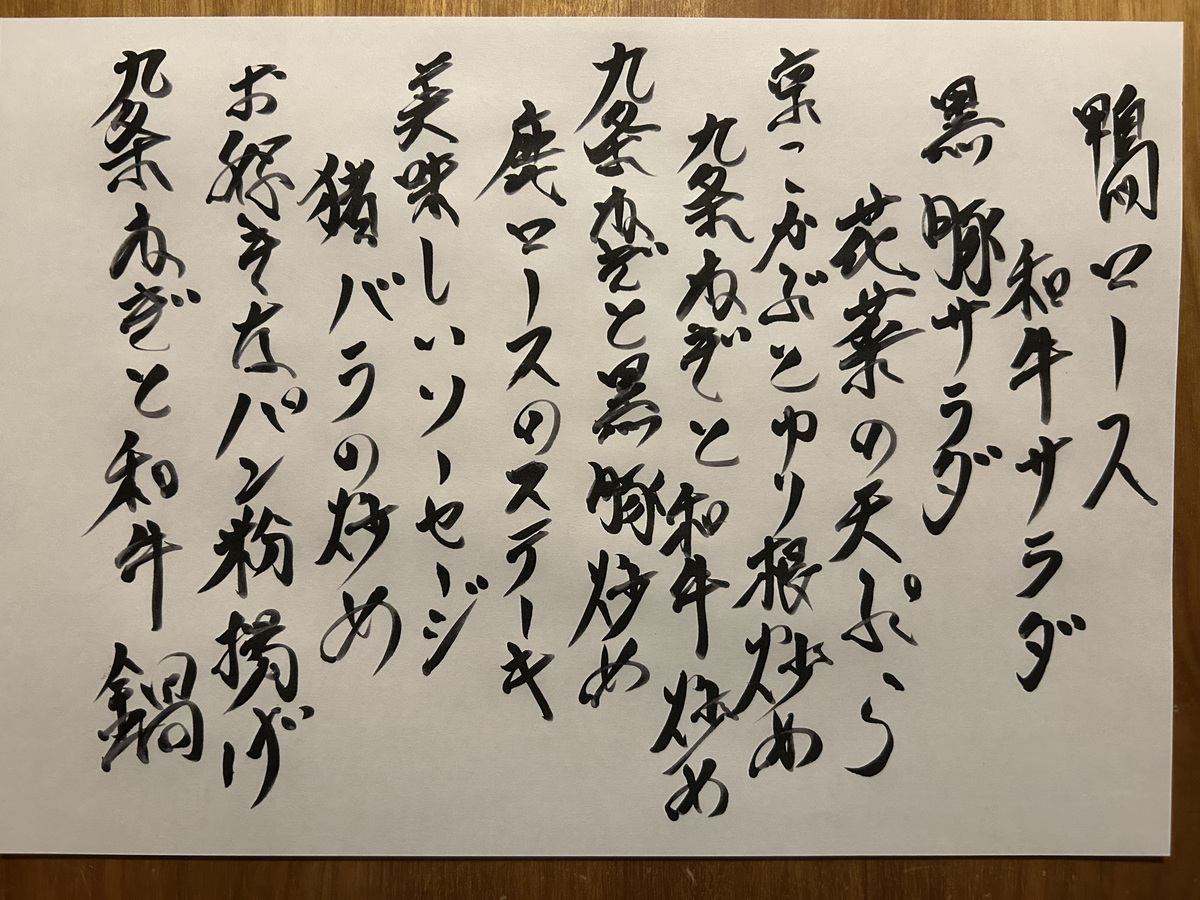 鴨ロース
和牛サラダ
黒豚サラダ
花菜の天ぷら
京こかぶとゆり根炒め
九条ねぎと和牛炒め
九条ねぎと黒豚炒め
鹿ロースのステーキ
美味しいソーセージ
猪バラの炒め
お好きなパン粉揚げ
九条ねぎと和牛鍋